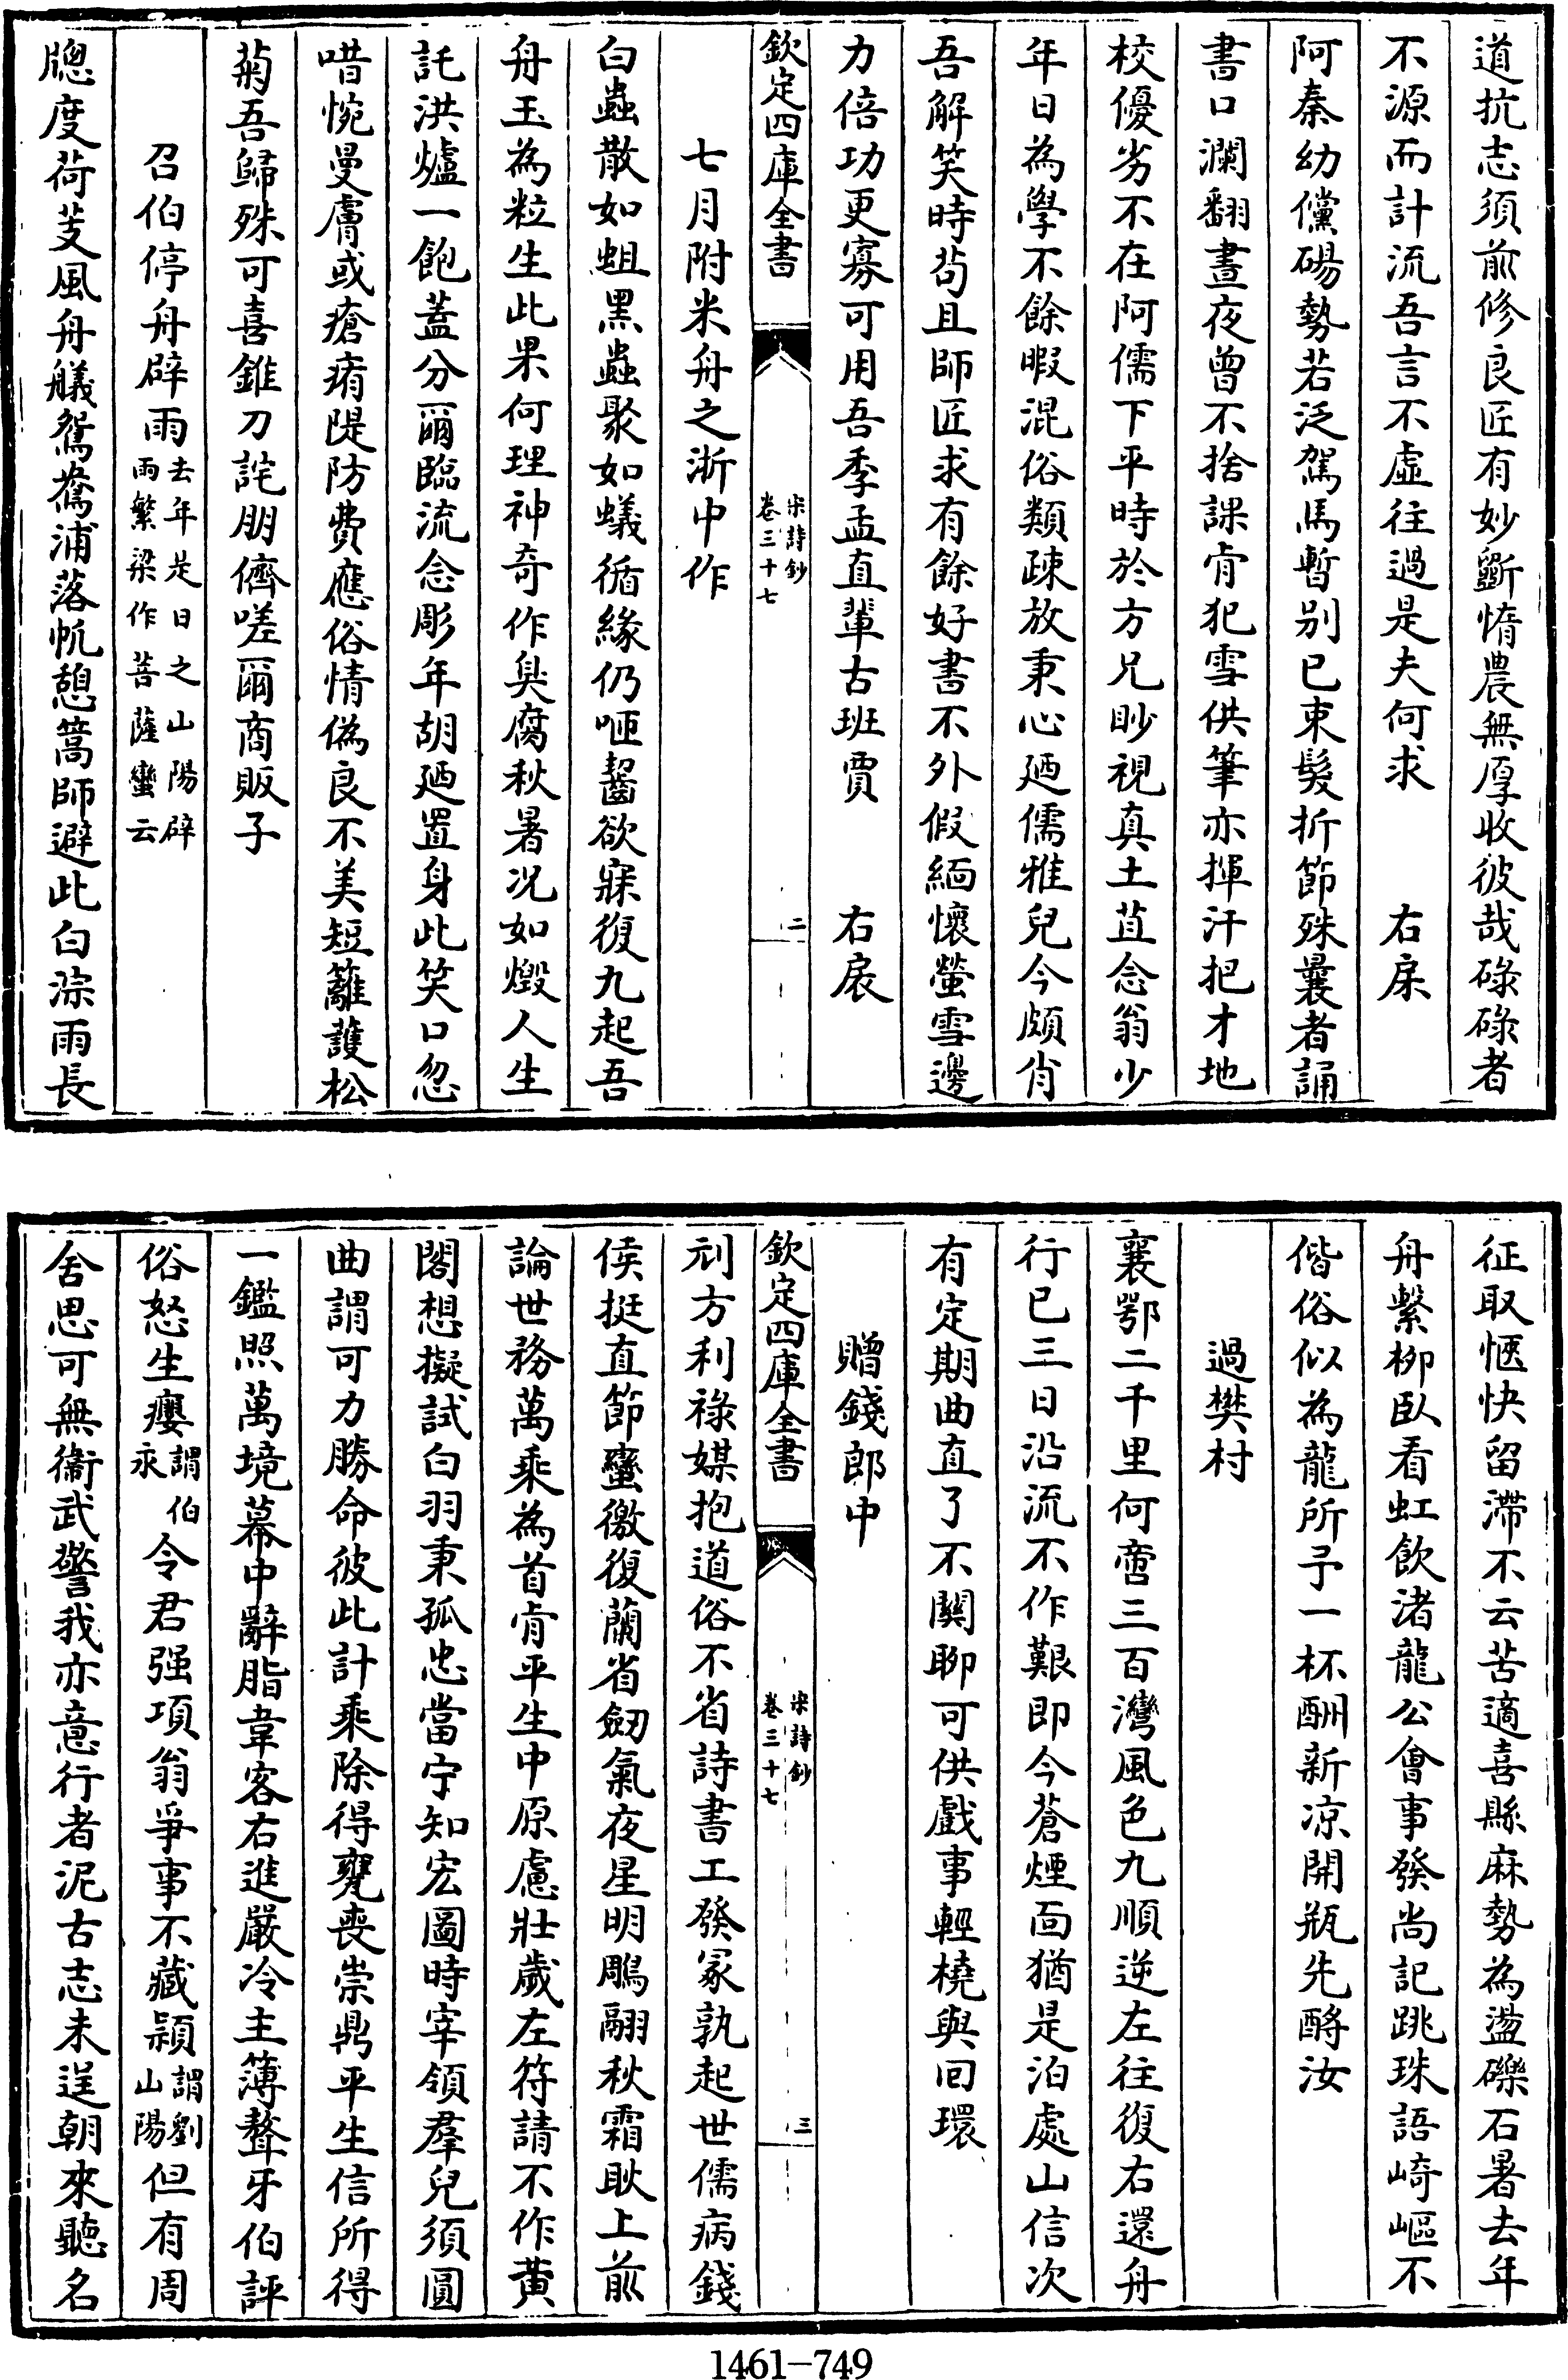 道抗志須前修良匠有妙斵惰農無厚收彼哉碌碌者
不源而計流吾言不虛往過是夫何求　　右㝩
阿秦幼儻碭勢若泛駕馬暫别已束髮折節殊曩者誦
書口瀾翻晝夜曾不捨課肯犯雪供筆亦揮汗把才地
校優劣不在阿儒下平時於方兄眇視真土苴念翁少
年日為學不餘暇混俗類疎放秉心廼儒雅兒今頗肯
吾解笑時茍且師匠求有餘好書不外假緬懷螢雪邊
力倍功更寡可用吾季孟直輩古班賈　　右扆
欽定四庫全書　宋詩鈔卷三十七　二
七月附米舟之浙中作
白蟲散如蛆黑蟲聚如蟻循緣仍咂齧欲寐復九起吾
舟玉為粒生此果何理神奇作臭腐秋暑况如燬人生
託洪爐一飽蓋分爾臨流念彫年胡廼置身此笑口忽
唶惋曼膚或瘡痏隄防費應俗情偽良不美短籬護松
菊吾歸殊可喜錐刀詫朋儕嗟爾商販子
召伯停舟辟雨去年是日之山陽辟雨繁梁作菩薩蠻云
牕度荷芰風舟艤鴛鴦浦落帆憩篙師避此白淙雨長
征取愜快留滯不云苦適喜縣麻勢為盪礫石暑去年
舟繫栁臥看虹飲渚龍公會事發尚記跳珠語崎嶇不
偕俗似為龍所予一杯酬新凉開瓶先酹汝
過樊村
襄鄂二千里何啻三百灣風色九順逆左往復右還舟
行已三日沿流不作艱即今蒼煙面猶是泊處山信次
有定期曲直了不關聊可供戲事輕橈與回環
贈錢郎中
欽定四庫全書　宋詩鈔卷三十七　三
刓方利祿媒抱道俗不省詩書工發冢孰起世儒病錢
侯挺直節蠻徼復蘭省劒氣夜星明鵰翮秋霜耿上前
論世務萬乘為首肯平生中原慮壯歲左符請不作黄
閣想擬試白羽秉孤忠當宁知宏圖時宰領羣兒須圓
曲謂可力勝命彼此計乘除得甕喪崇鼎平生信所得
一鑑照萬境幕中辭脂韋客右進嚴冷主簿聱牙伯評
俗怒生癭謂伯永令君强項翁爭事不藏頴謂劉山陽但有周
舍思可無衞武警我亦意行者泥古志未逞朝來聽名
1461—749